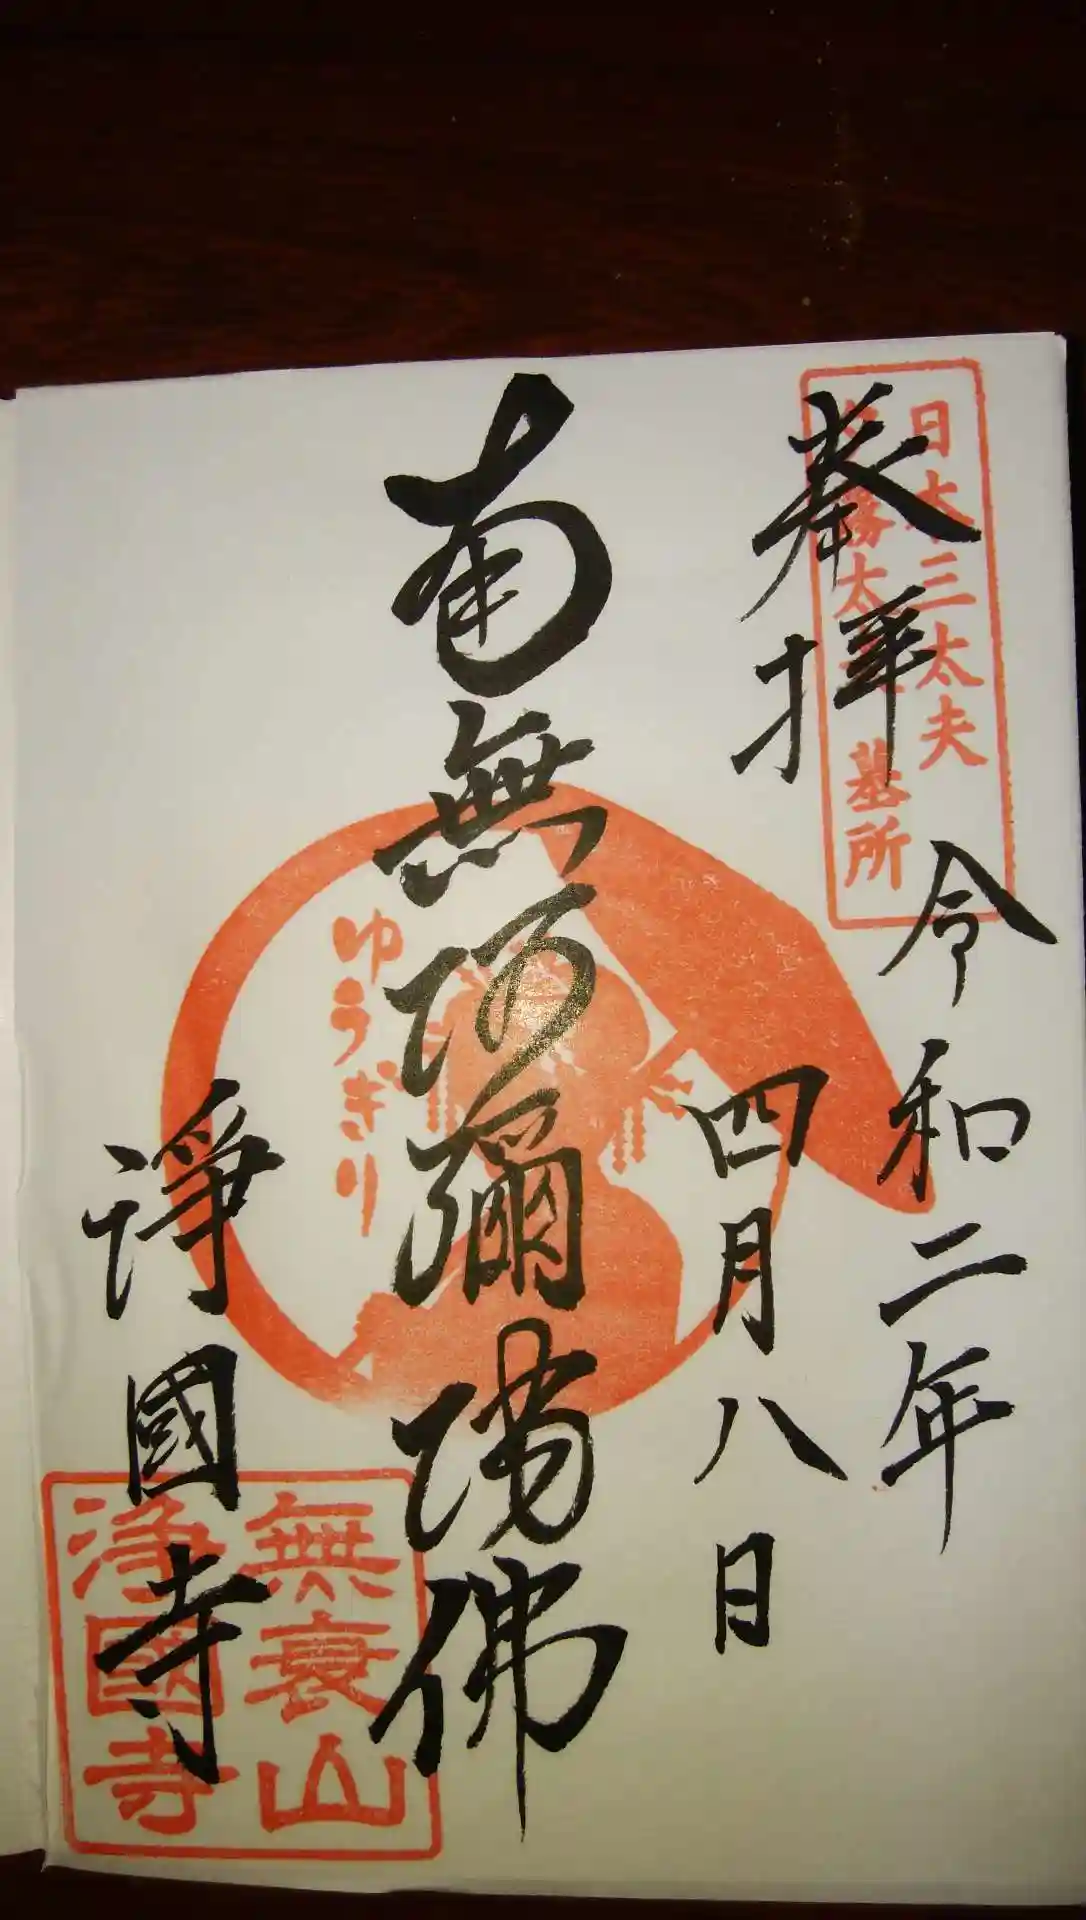 奉拝
日本三太夫
勝太 墓所
令和二年
四月八日
南無阿彌陀佛
ゆうぎり
淨國寺
無衰山
淨國寺